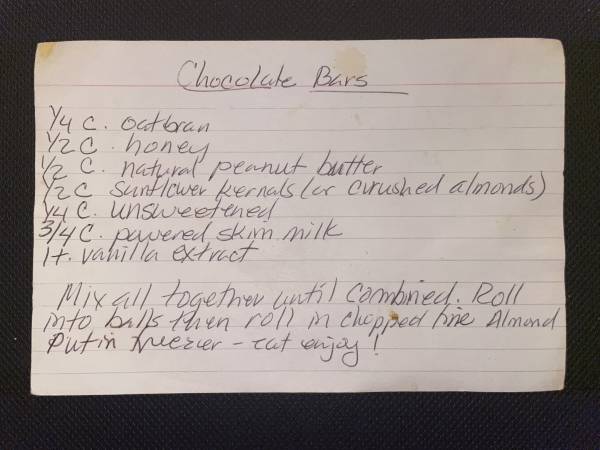 Chocolate Bars
1/4 C. oatbran
1/2 C. honey
1/2 C. natural peanut butter
1/2 C sunflower kernals (or curushed almonds)
1/4 C. unsweetened
3/4 C. powered skim milk
1 t. vanilla extract
Mix all together until combined. Roll
into balls then roll in chopped fine Almond
Put in freezer - eat enjoy!